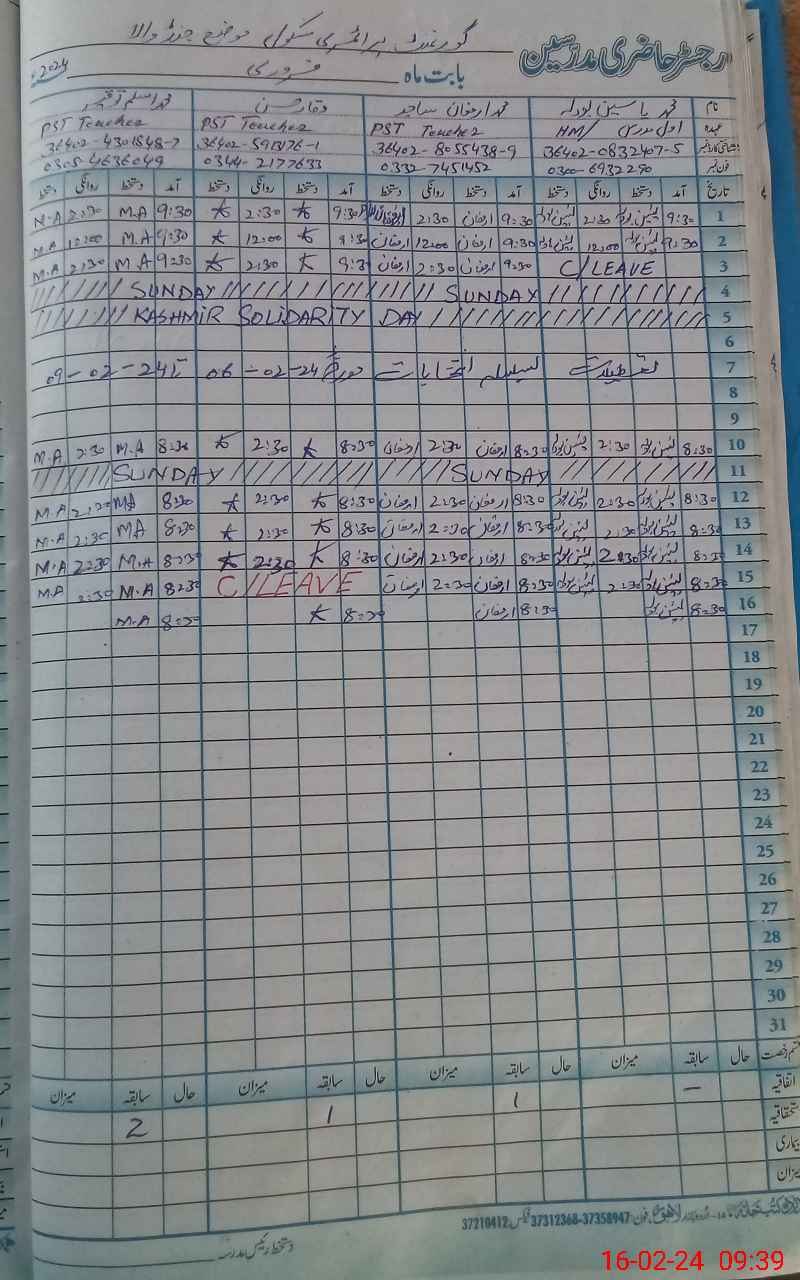 گورنمنٹ پرائمری سکول موضع جنڈ والا
رجسٹر حاضری مدرسین
بابت ماہ فروری 2024ء
نام محمد یاسین بودلہ محمد ارمغان ساجد وقار حسن محمد اسلم
عہدہ اول مدرس /HM PST Teacher PST Teacher PST Teacher
36402-0832407-5 36402-8055438-9 36402-5913176-1 36402-4301848-7
فون نمبر 0300-6932290 0332-7451452 0344-2177633 0305-4636049
تاریخ آمد دستخط روانگی دستخط آمد دستخط روانگی دستخط آمد دستخط روانگی دستخط آمد دستخط روانگی دستخط
1 9:30 2:30 9:30 ارمغان 2:30 ارمغان 9:30 2:30 9:30 M.A 2:30 M.A
2 9:30 12:00 9:30 ارمغان 12:00 ارمغان 9:30 12:00 9:30 M.A 12:00 M.A
3 C/LEAVE 9:30 ارمغان 2:30 ارمغان 9:30 2:30 9:30 M.A 2:30 M.A
4 SUNDAY SUNDAY
5 KASHMIR SOLIDARITY DAY
6
7 تعطیلات بسلسلہ انتخابات مورخہ 06-02-24 تا 09-02-24
8
9
10 8:30 2:30 8:30 ارمغان 2:30 ارمغان 8:30 2:30 8:30 M.A 2:30 M.A
11 SUNDAY SUNDAY
12 8:30 2:30 8:30 ارمغان 2:30 ارمغان 8:30 2:30 8:30 MA 2:30 M.A
13 8:30 2:30 8:30 ارمغان 2:30 ارمغان 8:30 2:30 8:30 MA 2:30 M.A
14 8:30 2:30 8:30 ارمغان 2:30 ارمغان 8:30 2:30 8:30 M.A 2:30 M.A
15 8:30 2:30 8:30 ارمغان 2:30 ارمغان C/LEAVE 8:30 M.A 2:30 M.A
16 8:30 8:30 ارمغان 8:30 8:30 M.A
17
18
19
20
21
22
23
24
25
26
27
28
29
30
31
قسم رخصت حال سابقہ میزان حال سابقہ میزان حال سابقہ میزان حال سابقہ میزان
اتفاقیہ – 1 1 2
استحقاقیہ
بیماری
میزان
لاہور فون: 37358947-37312368 فیکس: 37210412
دستخط رئیس مدرسہ
16-02-24 09:39